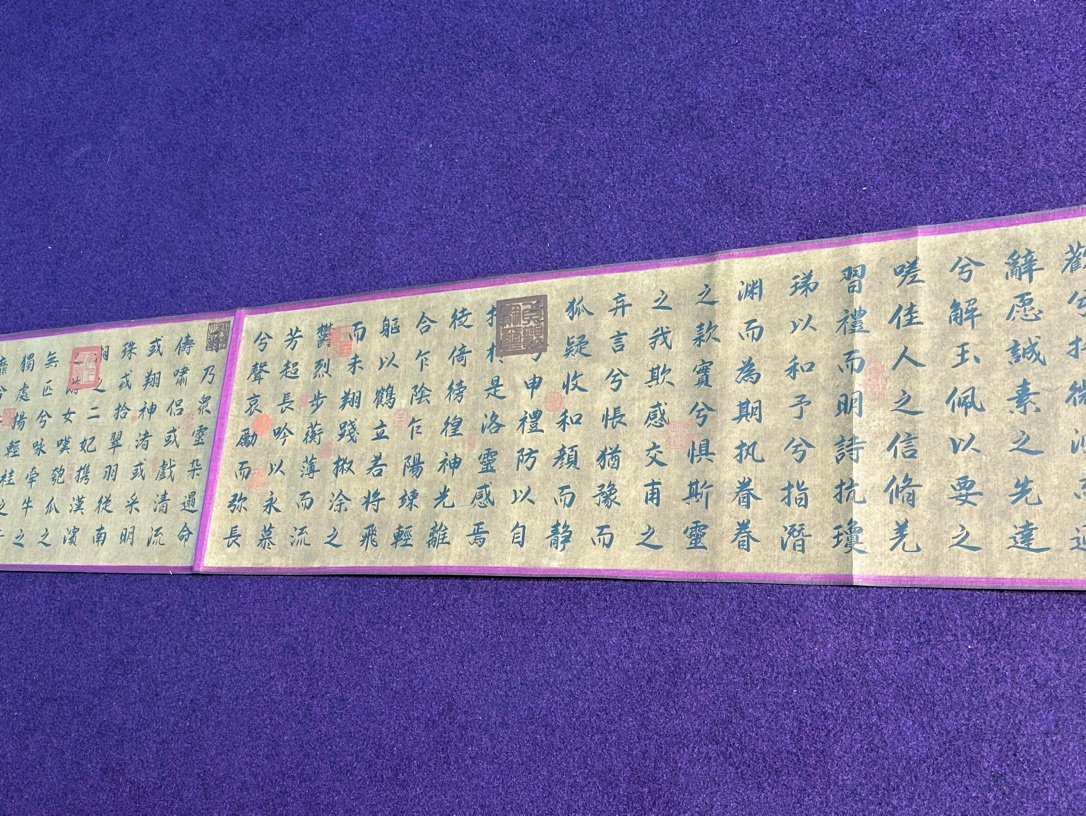 兮托微波
辭愿誠素之先達
兮解玉佩以要之
嗟佳人之信脩羌
習禮而明詩抗瓊
珶以和予兮指潛
渊而為期执眷眷
之款實兮惧斯靈
之我欺感交甫之
弃言兮怅猶豫而
狐疑收和顔而静
申禮防以自
是洛靈感焉
徙倚徬徨神光離
合乍陰乍陽竦輕
軀以鶴立若將飛
而未翔踐椒涂之
鬱烈步蘅薄而流
芳超長吟以永慕
兮聲哀勵而弥長
乃衆靈杂遝命
儔嘯侣或戲清流
或翔神渚或采明
珠或拾翠羽從南
湘之二妃携漢濱
女嘆匏瓜之
無匹兮咏牵牛之
獨處揚輕袿之